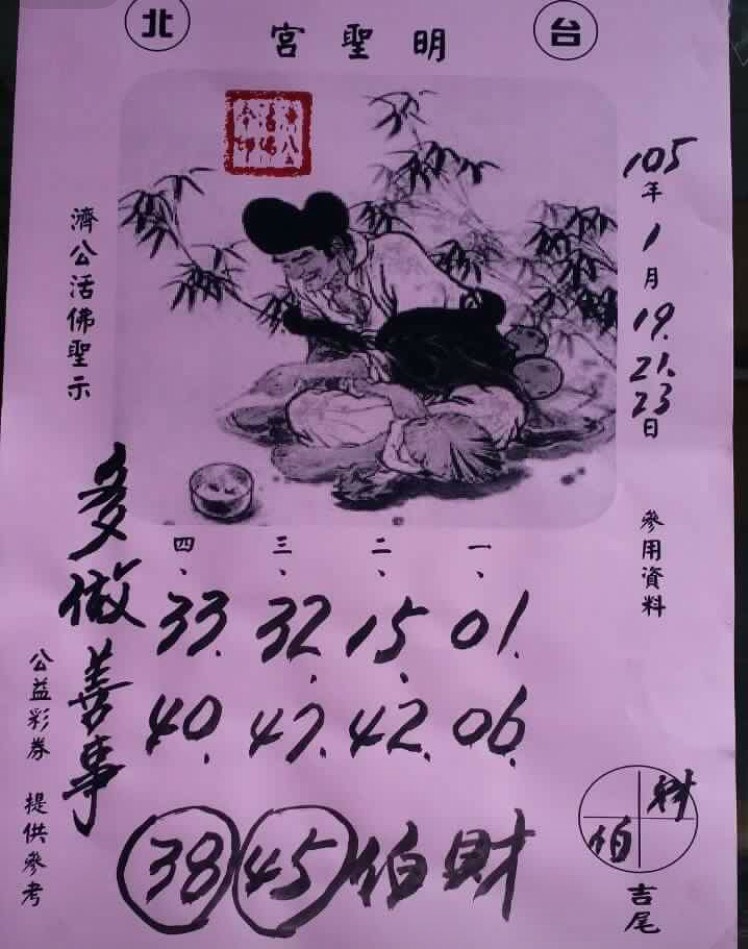 台北
明聖宮
105年1月19.21.23日
參用資料
一、01. 06.
二、15. 42.
三、32. 47.
四、33. 40.
財伯 45 38
財
伯
吉尾
濟公活佛聖示
多做善事
公益彩券 提供參考